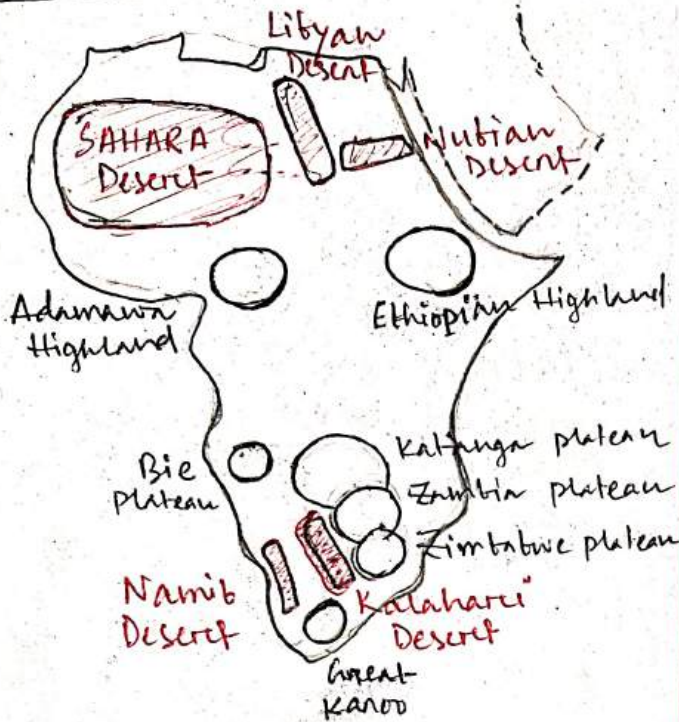 Libyan
Desert
SAHARA
Deseret
Nubian
Desert
Adamawa
Highland
Ethiopian Highland
Bie
Plateau
Katanga plateau
Zambia plateau
Zimbabwe plateau
Namib
Deseret
Kalaharci
Deseret
Great
Karoo